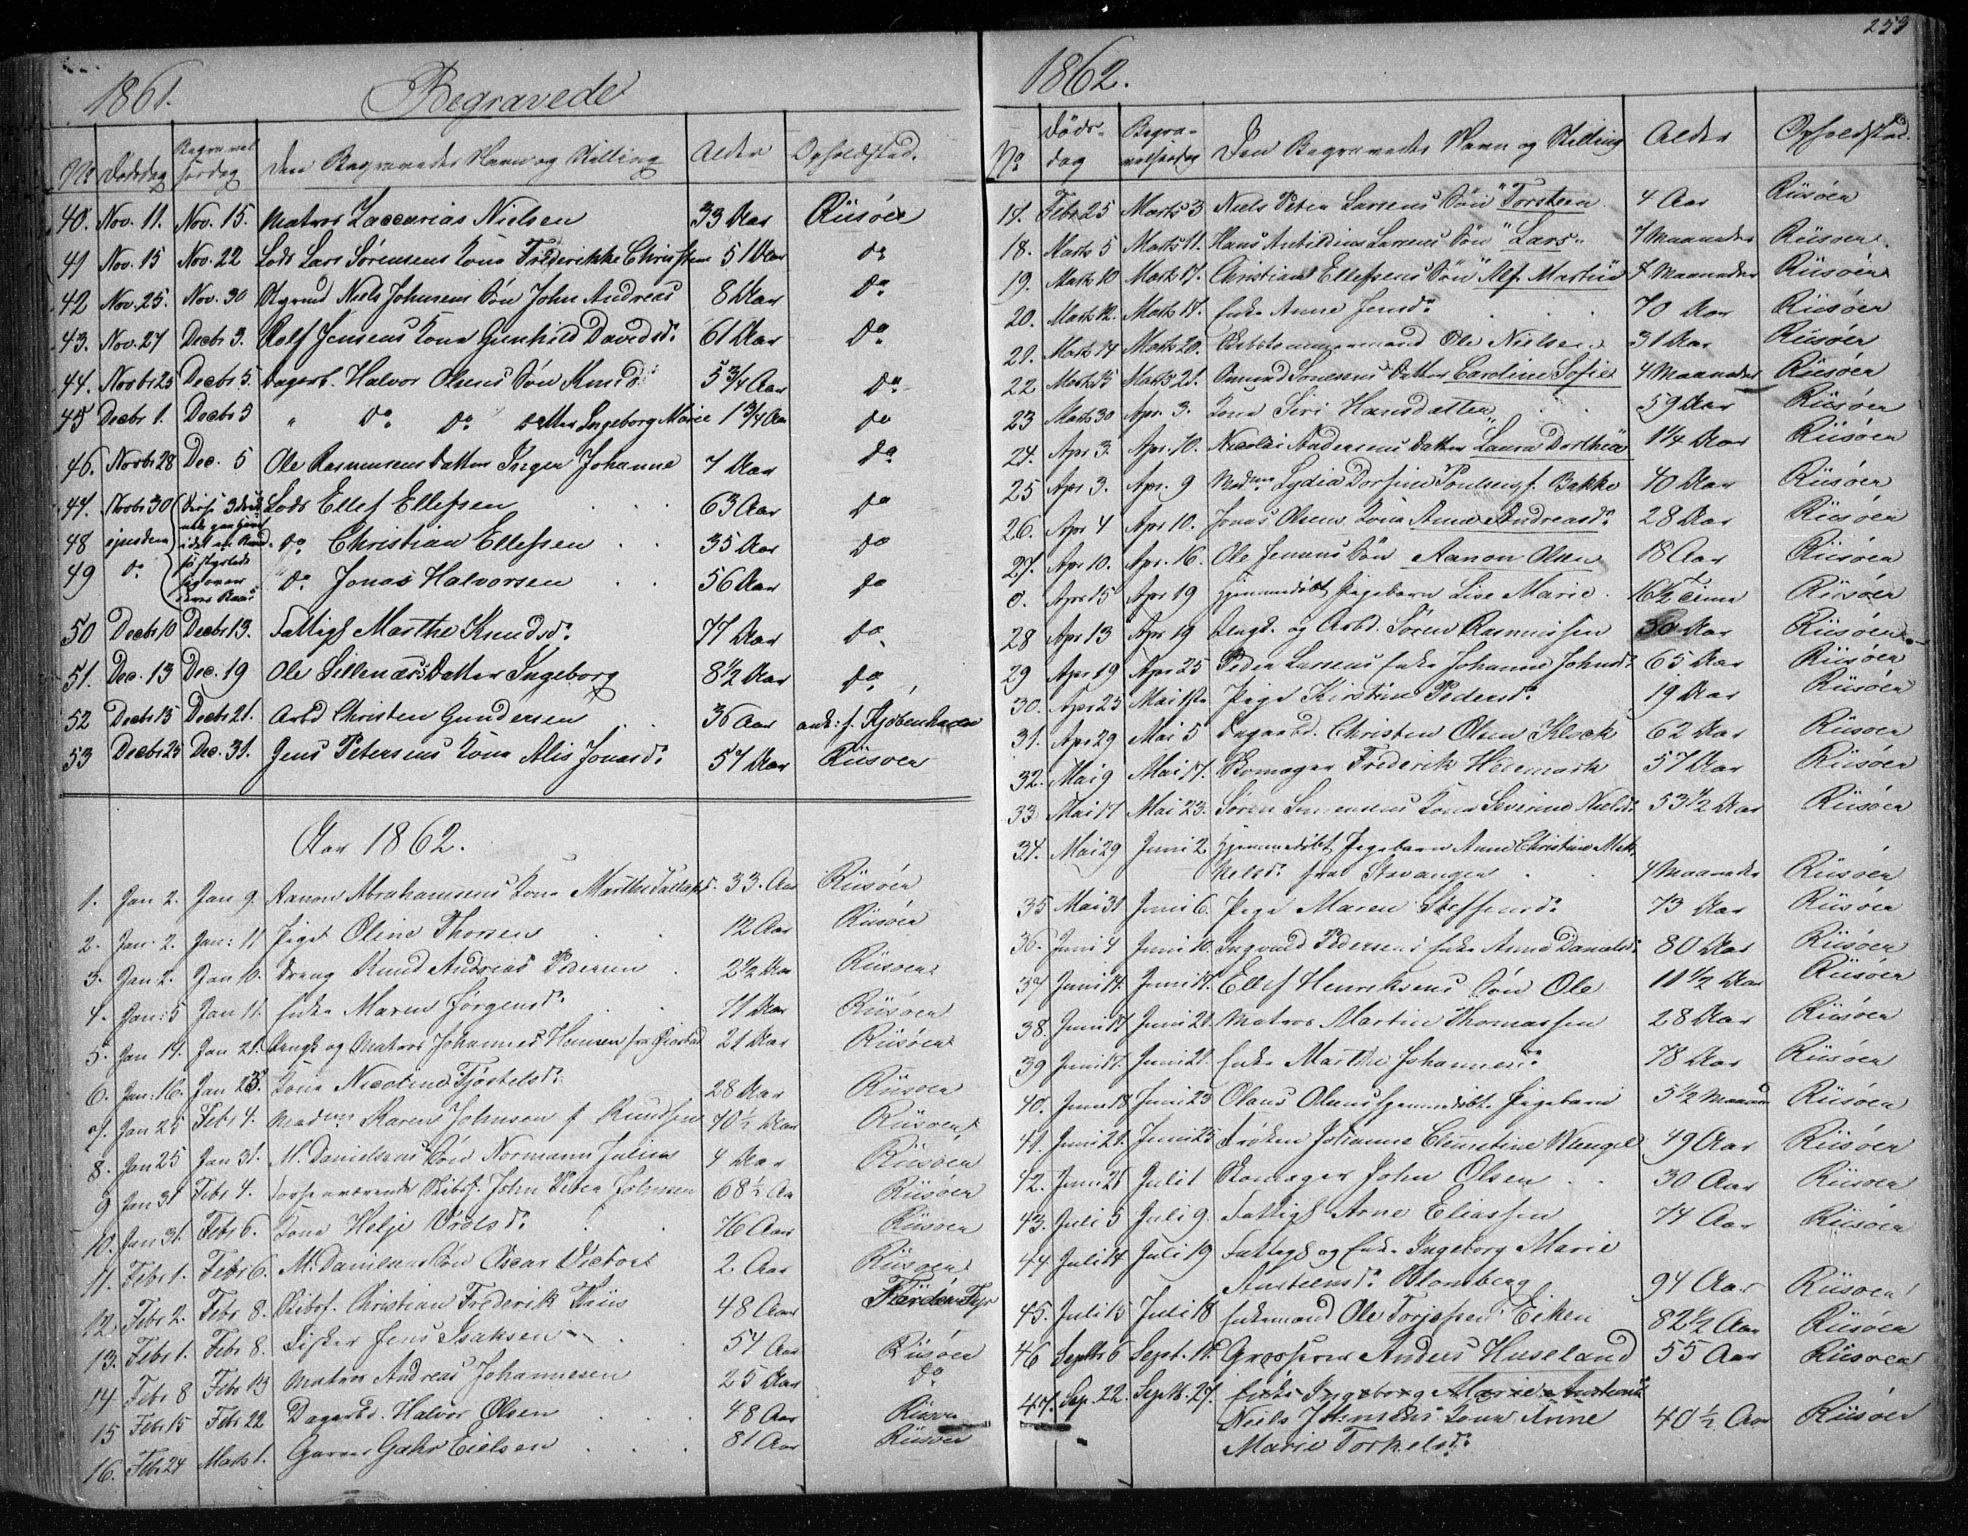 253
1861. Begravede
No Dødsdag Begravelsesdag Den Begravedes Navn og Stilling Alder Opholdsted.
40. Nov. 11. Nov. 15. Matros Zaccarias Nielsen 33 Aar Riisøer
41 Nov. 15 Nov. 22 Lods Lars Sørensens Kone Frederikke Christine 51 Aar do
42 Nov. 25. Nov. 30 Niels Johnsens Søn John Andreas 8 Aar do
43. Nov. 27 Decbr 3. Rolf Jensens Kone Gunhild Davidsd. 61 Aar do
44. Novbr 25 Decbr 5. Dagarb. Halvor Olsens Søn Knud 5 3/4 Aar do
45 Decbr 1. Decbr 5 " do do Datter Ingeborg Marie 1 3/4 Aar do
46. Novbr 28 Dec. 5 Ole Rasmussens Datter Inger Johanne 7 Aar do
47. Novbr 30 Disse 3 Lods Ellef Ellefsen 63 Aar do
48 ejusdem do Christian Ellefsen 35 Aar do
49 do do Jonas Halvorsen 56 Aar do
50 Decbr 10 Decbr 13. Fattigl. Marthe Knudsd. 77 Aar do
51. Dec. 13 Dec. 19 Ole Datter Ingeborg 8 1/2 Aar do
52 Decbr 15 Decbr 21. Arbd Christen Gundersen 36 Aar ank: f. Kjøbenhavn
53 Decbr 25 Dec. 31. Jens Petersens Kone Alis Jonasd. 57 Aar Riisøer
Aar 1862.
1. Jan 2. Jan 9. Aanon Abrahamsens Kone Marthe 33. Aar Riisøer
2. Jan. 2. Jan: 11 Pige Oline Thorsen 12 Aar Riisøer
3. Jan 2. Jan 10. Dreng Knud Andreas 2 1/2 Aar Riisøer
4. Jan: 5 Jan 11. Enke Maren Jørgensd. 71 Aar Riisøer
5. Jan 14. Jan 21. Ungk og Matros Johannes Hansen fra 21 Aar Riisøer
6. Jan: 16. Jan 23. Kone Nicoline Tjøstelsd. 28 Aar Riisøer
7. Jan 25 Febr 4. Madm Karen Johnson f. Knudsen 40 1/2 Aar Riisøer
8. Jan 25 Jan 31. M. Danielsens Søn Normann Julius 4 Aar Riisøer
9 Jan 31 Febr 4. Skibsf. John Peter Johnsen 68 1/2 Aar Riisøer
10. Jan 31. Febr 6. Kone Helje 76 Aar Riisøer
11. Febr 1. Febr 6. M. Danielsens Søn Oscar Victor 2 Aar Riisøer
12. Febr 2. Febr 8. Skibsf. Christian Frederik 48 Aar Færder Fyr
13. Febr 1. Febr 8. Fisker Jens Isaksen 57 Aar Riisøer
14 Febr 8 Febr 13 Matros Andreas Johannesen 25 Aar do
15 Febr 15 Febr 22 Dagarbd. Halvor Olsen 48 Aar Riisøer
16. Febr 24 Marts 1. Garver Gahr Eielsen 81 Aar Riisøer
1862.
No Dødsdag Begravelsesdag Den Begravedes Navn og Stilling Alder Opholdsted.
17. Febr 25 Marts 3 Niels Peter Larsens Søn Torsten 4 Aar Riisøer
18. Marts 5 Marts 11. Hans Larsens Søn Lars 7 Maaneder Riisøer
19. Marts 10 Marts 17. Christian Ellefsens Søn Alf Martin 4 Maaneder Riisøer
20. Marts 12. Marts 17. Enke Anne Jensd. 70 Aar Riisøer
21. Marts 14 Marts 20. Ole Nielsen 31 Aar Riisøer
22 Marts 15 Marts 21. Datter Caroline Sofie 4 Maaneder Riisøer
23 Marts 30 Apr. 3. Kone Siri Hansdatter 59 Aar Riisøer
24. Apr 3. Apr. 10. Nicolai Andersens Datter Laura Dorthea 1 1/4 Aar Riisøer
25 Apr 3. Apr. 9 Madm Lydia Dorfine Poulsen f. Bakke 40 Aar Riisøer
26. Apr 4 Apr 10. Jonas Olsens Kone Anne Andreasd. 28 Aar Riisøer
27. Apr 10. Apr. 16. Ole Jensens Søn Aanon Olsen 18 Aar Riisøer
0. Apr 15 Apr 19 Hjemmedøbt Pigebarn Live Marie 16 1/2 Time Riisøer
28 Apr 13 Apr 19 Ungk. og Arbd. Søren Rasmussen 30 Aar Riisøer
29 Apr 19 Apr 25 Peder Larsens Enke Johanne Johnsd. 65 Aar Riisøer
30. Apr 25 Mai Pige Kirstine Pedersd. 19 Aar Riisøer
31. Apr 29 Mai 5 Dagarbd. Christen Olsen 62 Aar Riisøer
32. Mai 9 Mai 17. Skomager Frederik Hedemark 57 Aar Riisøer
33 Mai 17 Mai 23. Søren Kone Severine Nielsd. 53 1/2 Aar Riisøer
34. Mai 29 Juni 2 Hjemmedøbt Pigebarn Anne Christine
fra Stavanger 4 Maaneder Riisøer
35 Mai 31 Juni 6. Pige Maren Steffensd. 73 Aar Riisøer
36. Juni 4 Juni 10. Ingvald Pedersens Enke Anne Danielsd. 80 Aar Riisøer
37 Juni 14. Juni 17. Ellef Henriksens Søn Ole 11 1/2 Aar Riisøer
38. Juni 17 Juni 21. Matros Martin Thomassen 28 Aar Riisøer
39 Juni 17. Juni 21. Enke Marthe Johannesd. 78 Aar Riisøer
40. Juni 18 Juni 23 Olaus Olsens hjemmedøbt Pigebarn 5 1/2 Maaned Riisøer
41. Juni 21. Juni 25 Frøken Johanne Clementine Wengel 49 Aar Riisøer
42. Juni 25 Juli 1 Skomager John Olsen 30 Aar Riisøer
43. Juli 5 Juli 9. Fattigl. Arne Eliassen 74 Aar Riisøer
44. Juli 14. Juli 19 Fattigl og Enke Ingeborg Marie
Austensd. Blomberg 94 Aar Riisøer
45. Juli 15 Juli 18 Enkemand Ole Torjessen Eiken 82 1/2 Aar Riisøer
46 Septbr 6 Sept. 11. Grosserer Anders Huseland 55 Aar Riisøer
47. Sep. 22. Septb. 27. Enke Ingeborg Marie Austensd.
Niels Johnsens Kone Anne 40 1/2 Aar Riisøer
Marie Torkelsd.